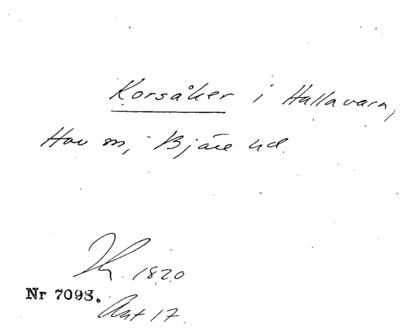 Korsåker i Hallavara,
Hov sn, Bjäre hd.
Th. 1820
Nr 7093.
Akt 17.